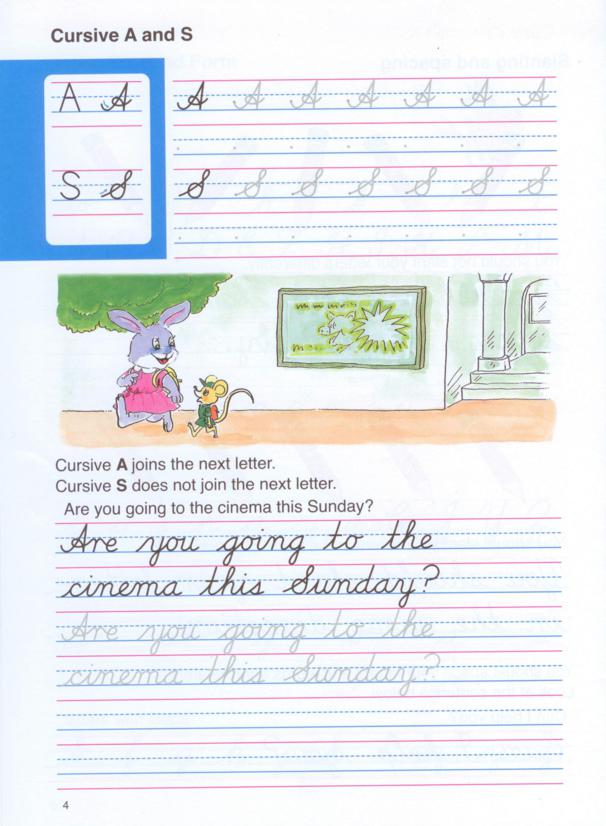 Cursive A and S
A A A A A A A A A
S S S S S S S S S
Cursive A joins the next letter.
Cursive S does not join the next letter.
Are you going to the cinema this Sunday?
Are you going to the
cinema this Sunday?
Are you going to the
cinema this Sunday?
4